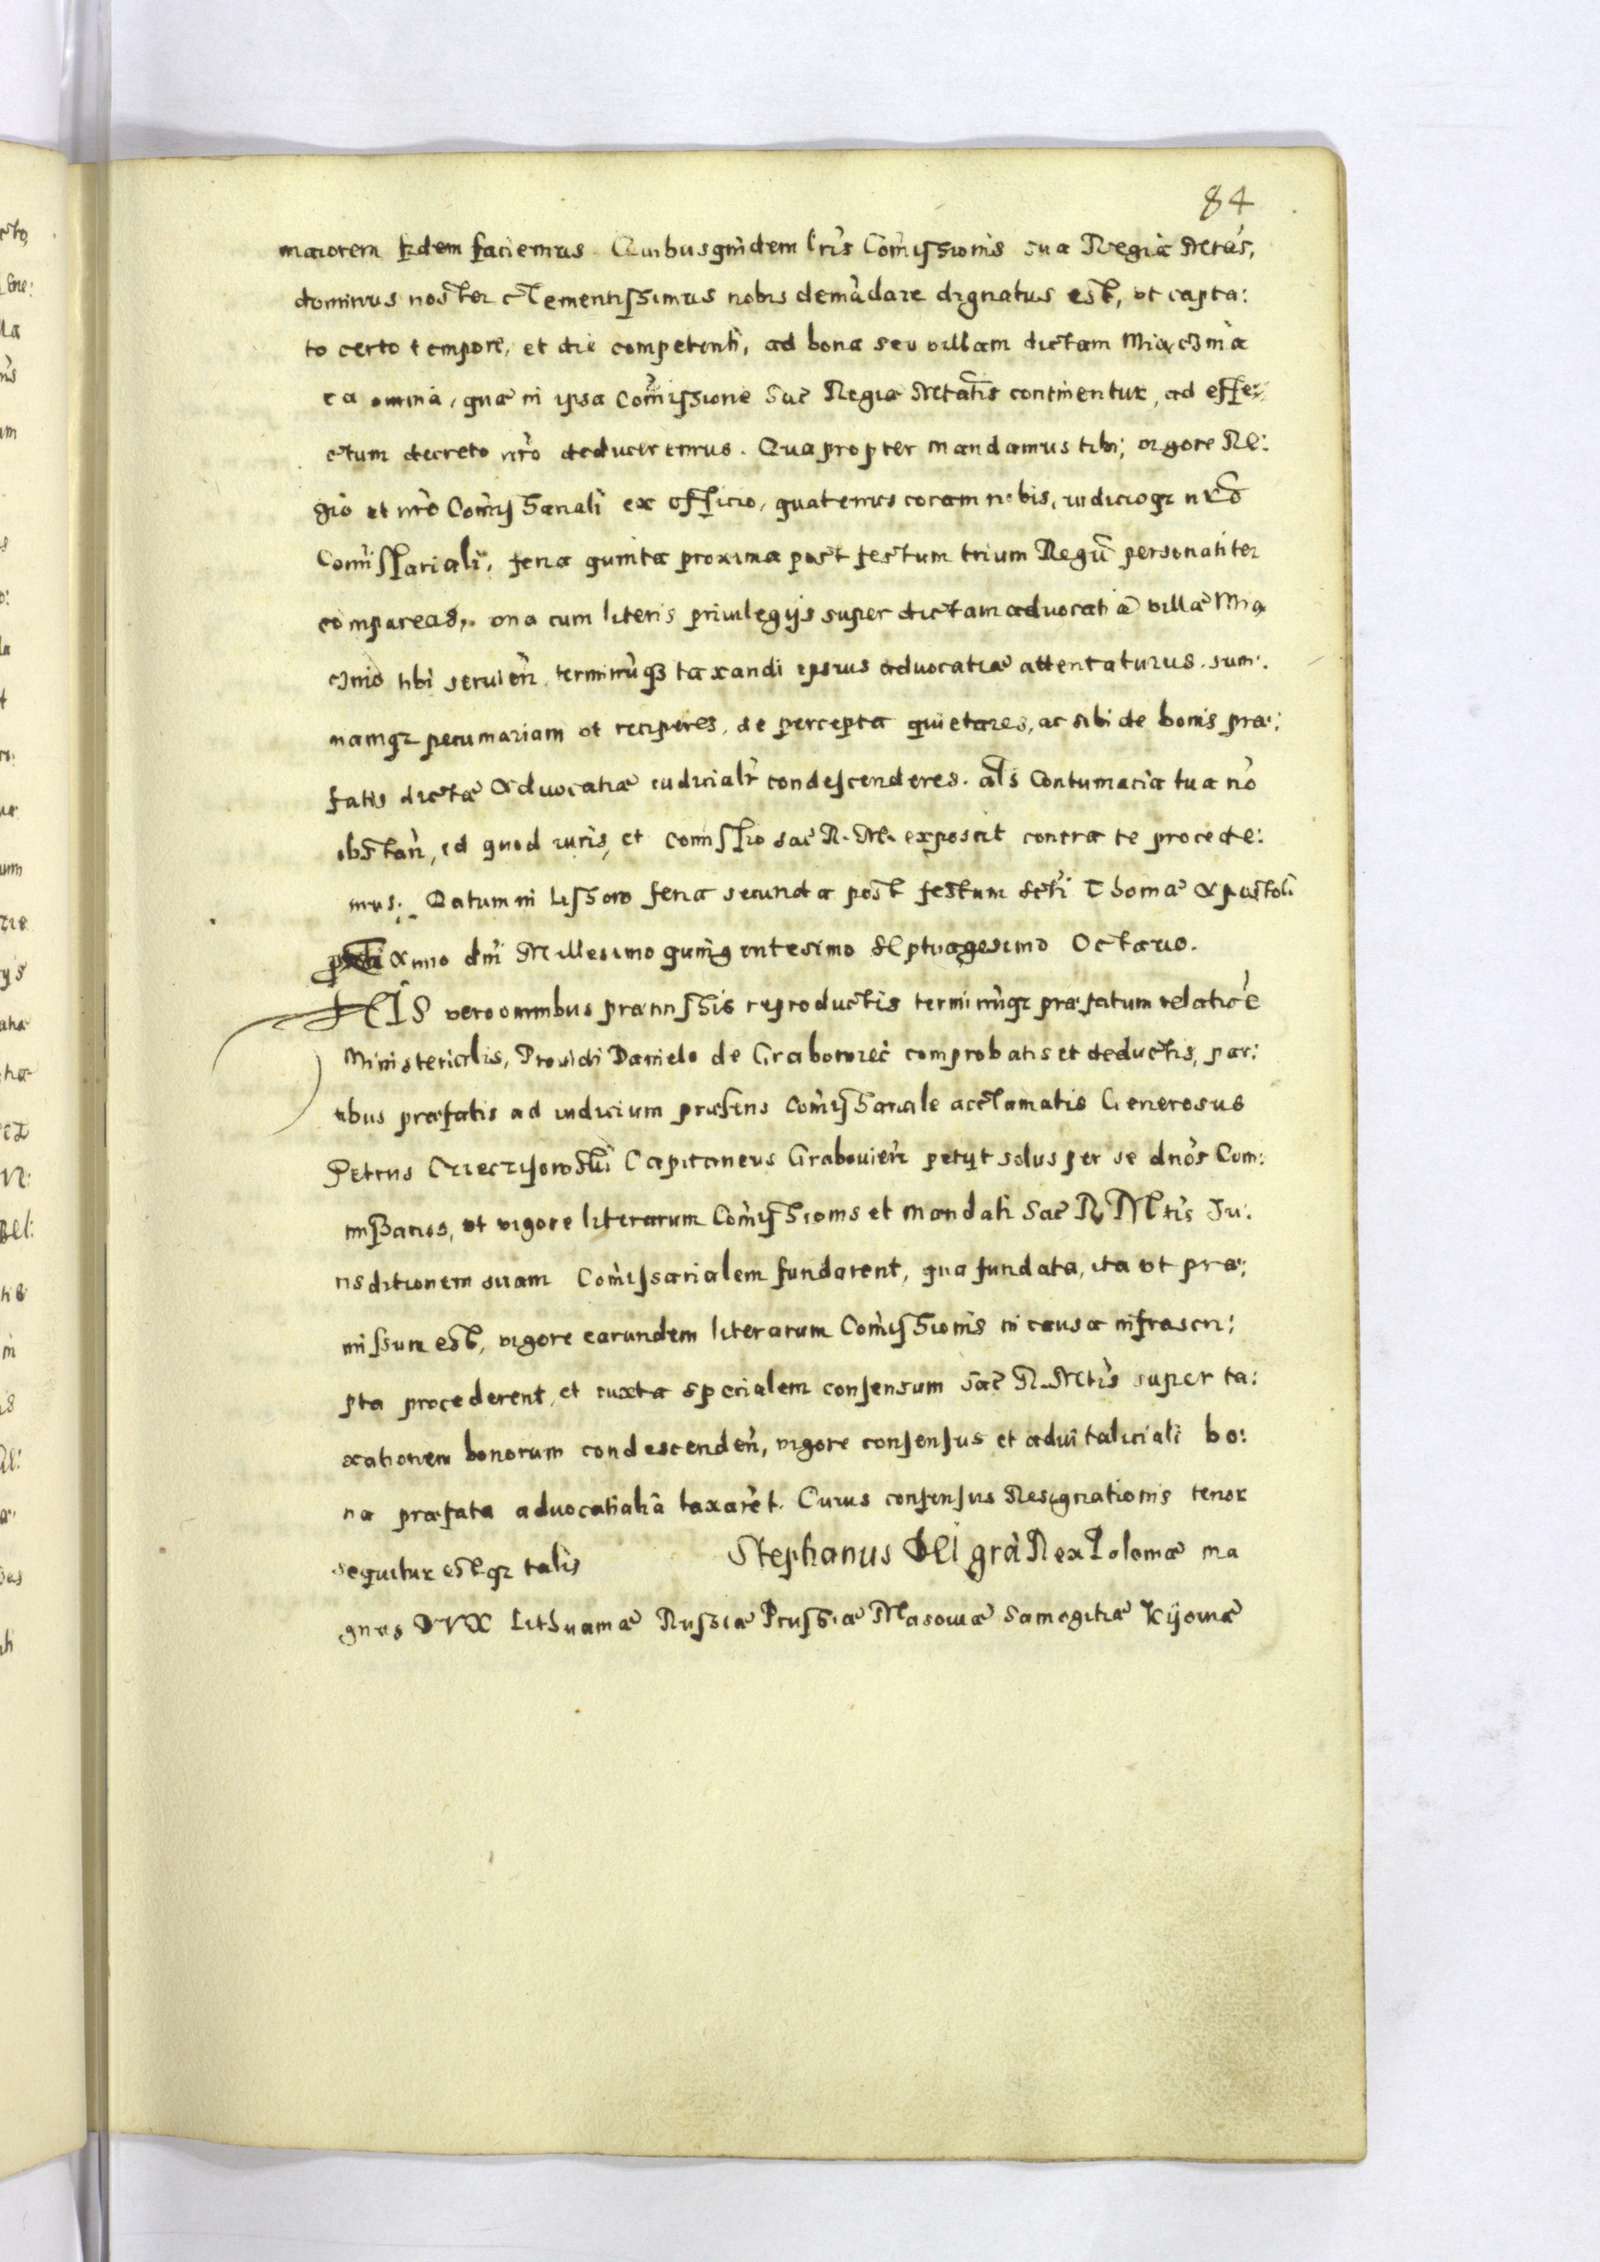 84
maiorem fidem faciemus. Quibusquidem lrīs Com̄issionis sua Regia Mtas,
dominus noster clementissimus nobis demādare dignatus est, ut capta:
to certo tempore, et die competenti, ad bona seu villam dictam Miączina
ea omnia, quæ in ipsa Com̄issione Sac Regiæ Mtatis continentur, ad effe:
ctum decreto nr̄o deduceremus. Quapropter mandamus tibi, vigore Re:
gio et nr̄o Com̄issariali ex officio, quatenus coram nobis, iudicioq3 nr̄o
Com̄issariali, feria quinta proxima post festum trium Regū personaliter
compareas, una cum literis priuilegijs super dictam aduocatiā villæ Mią
czino tibi seruien̄, terminūq3 taxandi ipsius aduocatiæ attentaturus. sum:
mamq3 pecuniariam ut reciperes, de percepta quietares, ac tibi de bonis præ:
fatis dictæ Aduocatiæ iudicialr̄ condescenderes. als Contumacia tua nō
obstan̄, id quod iuris, et Comissio sac R. M. exposcit contra te procede:
mus. Datum in Lissow feria secunda post festum Scti Thomæ Apostoli
Anno dni Millesimo quingintesimo Septuagesimo Octauo.
HIS vero omnibus præmissis reproductis terminūq3 præfatum relatiōe
Ministerialis, Prouidi Danielo de Grabowiec comprobatis et deductis, par:
tibus præfatis ad iudicium præsens Com̄issariale acclamatis Generosus
Petrus Capitaneus Grabouien̄ petijt solus per se dnōs Com:
missarios, ut vigore literarum Com̄issionis et mandati Sac R Mtis Ju:
risditionem suam Com̄issarialem fundarent, qua fundata, ita ut præ:
missum est, vigore earundem literarum Com̄issionis in causa infrascri:
pta procederent, et iuxta specialem consensum Sac R. Mtis super ta:
xationem bonorum condescenden̄, vigore consensus et aduitaliciali bo:
na præfata aduocatialia taxarēt. Cuius consensus Resignationis tenor
sequitur estq3 talis Stephanus DEI grā Rex Poloniæ ma
gnus DVX Lithuaniæ Russiæ Prussiæ Masouiæ Samogitiæ Kijouiæ